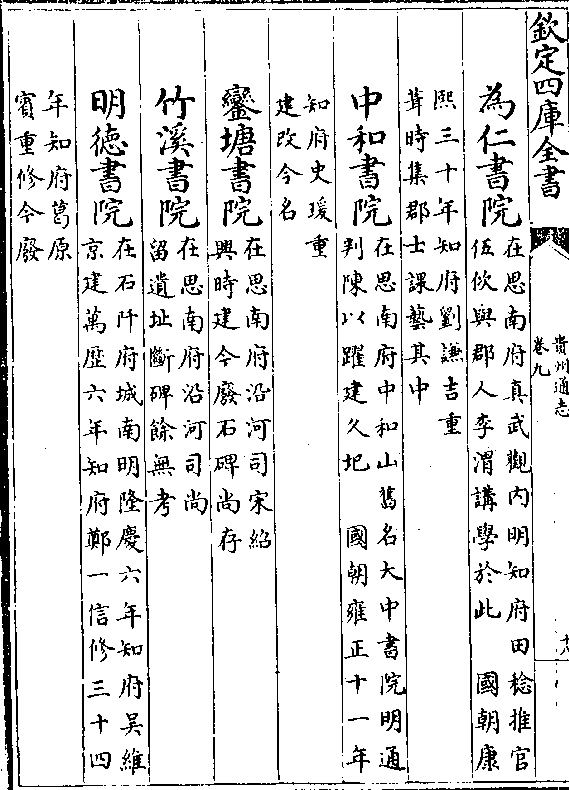 欽定四庫全書
貴州通志
卷九
為仁書院
在思南府真武觀内明知府田稔推官
伍佽與郡人李渭講學於此　國朝康
熙三十年知府劉謙吉重
葺時集郡士課藝其中
中和書院
在思南府中和山舊名大中書院明通
判陳以躍建久圮　國朝雍正十一年
知府史瑗重
建改今名
鑾塘書院
在思南府沿河司宋紹
興時建今廢石碑尚存
竹溪書院
在思南府沿河司尚
留遺址斷碑餘無考
明德書院
在石阡府城南明隆慶六年知府吳維
京建萬歴六年知府鄭一信修三十四
年知府葛原
賓重修今廢